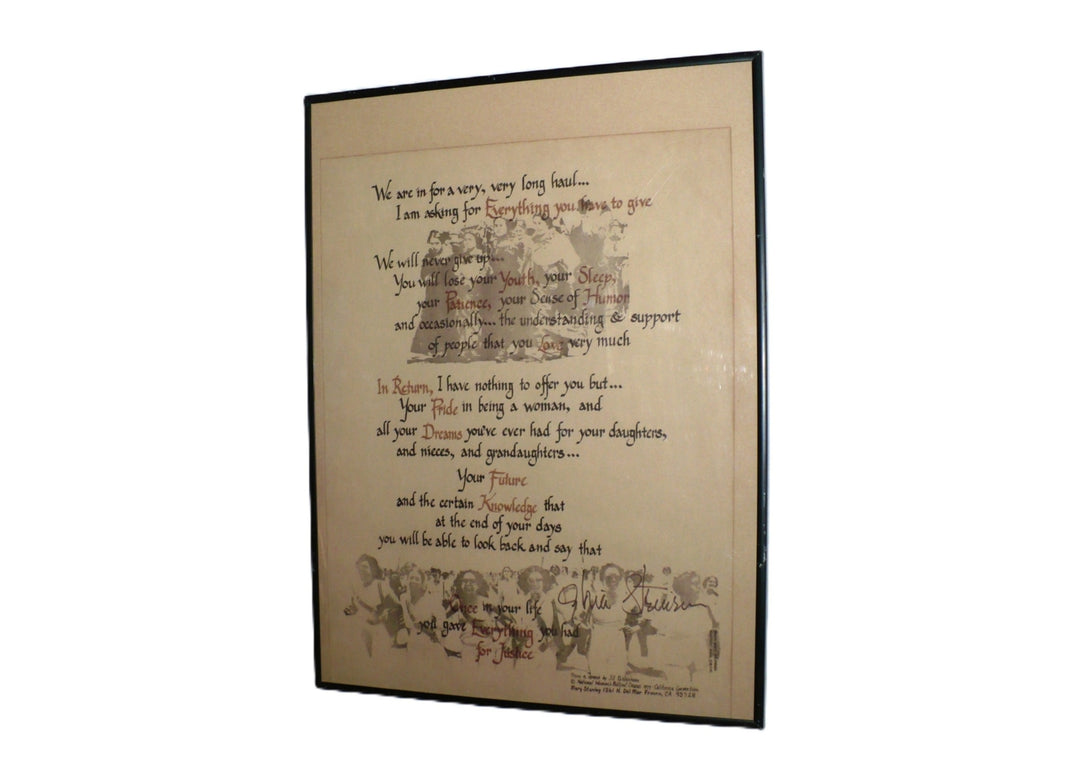 We are in for a very, very long haul...
I am asking for Everything you have to give
We will never give up...
You will lose your Youth, your Sleep,
your Patience, your Sense of Humor
and occasionally... the understanding & support
of people that you Love very much
In Return, I have nothing to offer you but...
Your Pride in being a woman, and
all your Dreams you've ever had for your daughters,
and nieces, and grandaughters...
Your Future
and the certain Knowledge that
at the end of your days
you will be able to look back and say that
Once in your life
you gave Everything you had
for Justice
From a speech by Jill
© National Women's Political Caucus 1977 California
Mary Stanley 1261 N. Del Mar Fresno, CA 93728